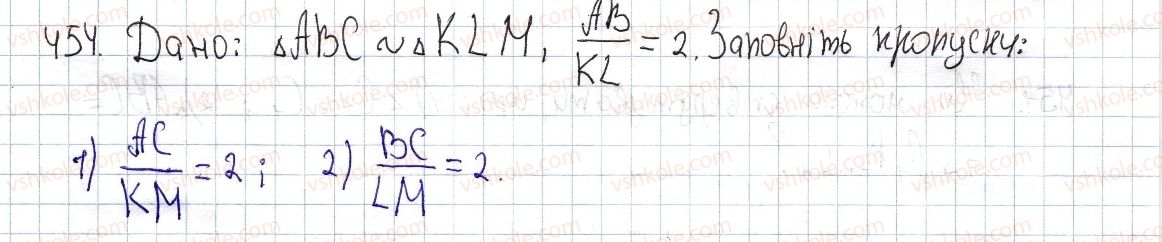 454. Дано: △ABC ~ △KLM, AB/KL = 2. Заповніть пропуски:
1) AC/KM = 2; 2) BC/LM = 2.